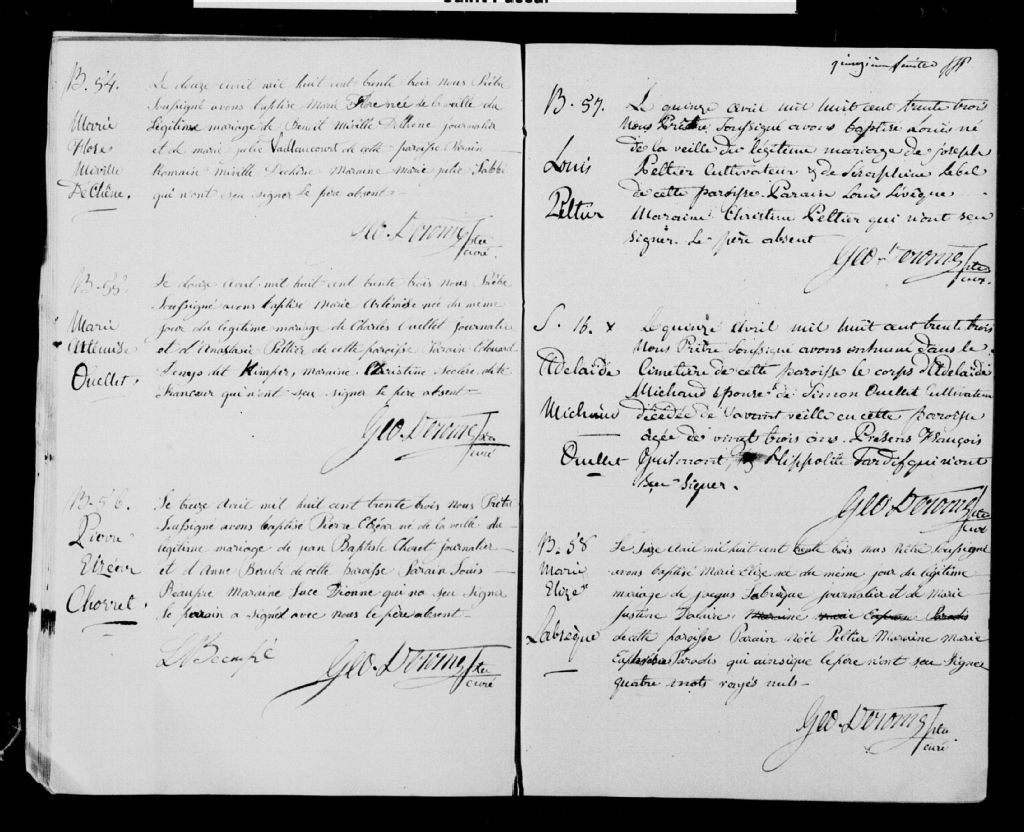 Saint Pascal
B. 54.
Marie
Flore
Miville
DeChêne.
Le douze avril mil huit cent trente trois nous Prêtre
soussigné avons baptisé Marie Flore née de la veille du
légitime mariage de Benoit Miville DeChêne journalier
et de marie julie Vaillancourt de cette paroisse Parain
Romain miville Dechêne Maraine marie julie
qui n'ont seu signer le père absent.
Geo. Derome Ptre
curé.
B. 55.
Marie
Artemise
Ouellet.
Le douze avril mil huit cent trente trois nous Prêtre
soussigné avons baptisé Marie Artémise née du meme
jour du légitime mariage de Charles Ouellet journalier
et d'Anastasie Peltier de cette paroisse Parain Edouard
dit Kimper, maraine Christine dite
Francoeur qui n'ont seu signer le père absent.
Geo. Derome Ptre
curé
B. 56.
Pierre
Elzéar
Chorret.
Le treize Avril mil huit cent trente trois nous Prêtre
soussigné avons baptisé Pierre Elzéar né de la veille du
légitime mariage de jean Baptiste Choret journalier
et d'Anne Boucher de cette paroisse Parain Louis
Beaupré Maraine Luce Dionne qui na seu signer
le parain a signé avec nous le père absent
LBeaupré
Geo. Derome Ptre
curé
quinzieme feuillet
B. 57.
Louis
Peltier
Le quinze avril mil huit cent trente trois
Nous Prêtre Soussigné avons baptisé Louis né
de la veille du légitime mariage de joseph
Peltier Cultivateur & de Séraphine Lebel
de cette paroisse. Parain Louis Lévêque
Maraine Christine Peltier qui n'ont seu
signer. Le père absent
Geo. Derome Ptre
curé.
S. 16. x
Adelaïde
Michaud
Ouellet
Le quinze Avril mil huit cent trente trois
Nous Prêtre Soussigné avons enhumé dans le
Cimetière de cette paroisse le corps d'Adelaïde
Michaud Epouse de Simon Ouellet Cultivateur
décédée de l'avant veille en cette Paroisse
agée de vingt trois ans. Présens François
Guilmont & Hippolite Tardif qui n'ont
seu signer.
Geo Derome Ptre
curé
B. 58
Marie
Elize
Labrèque
Le Seize Avril mil huit cent trente trois nous Prêtre soussigné
avons baptisé Marie Elize née du même jour du légitime
mariage de jacques Labrèque journalier et de Marie
Justine Maraine marie Paradis
de cette paroisse Parain Noël Peltier Maraine marie
Paradis qui ainsique le père n'ont seu Signer
quatre mots rayés nuls
Geo. Derome Ptre
curé